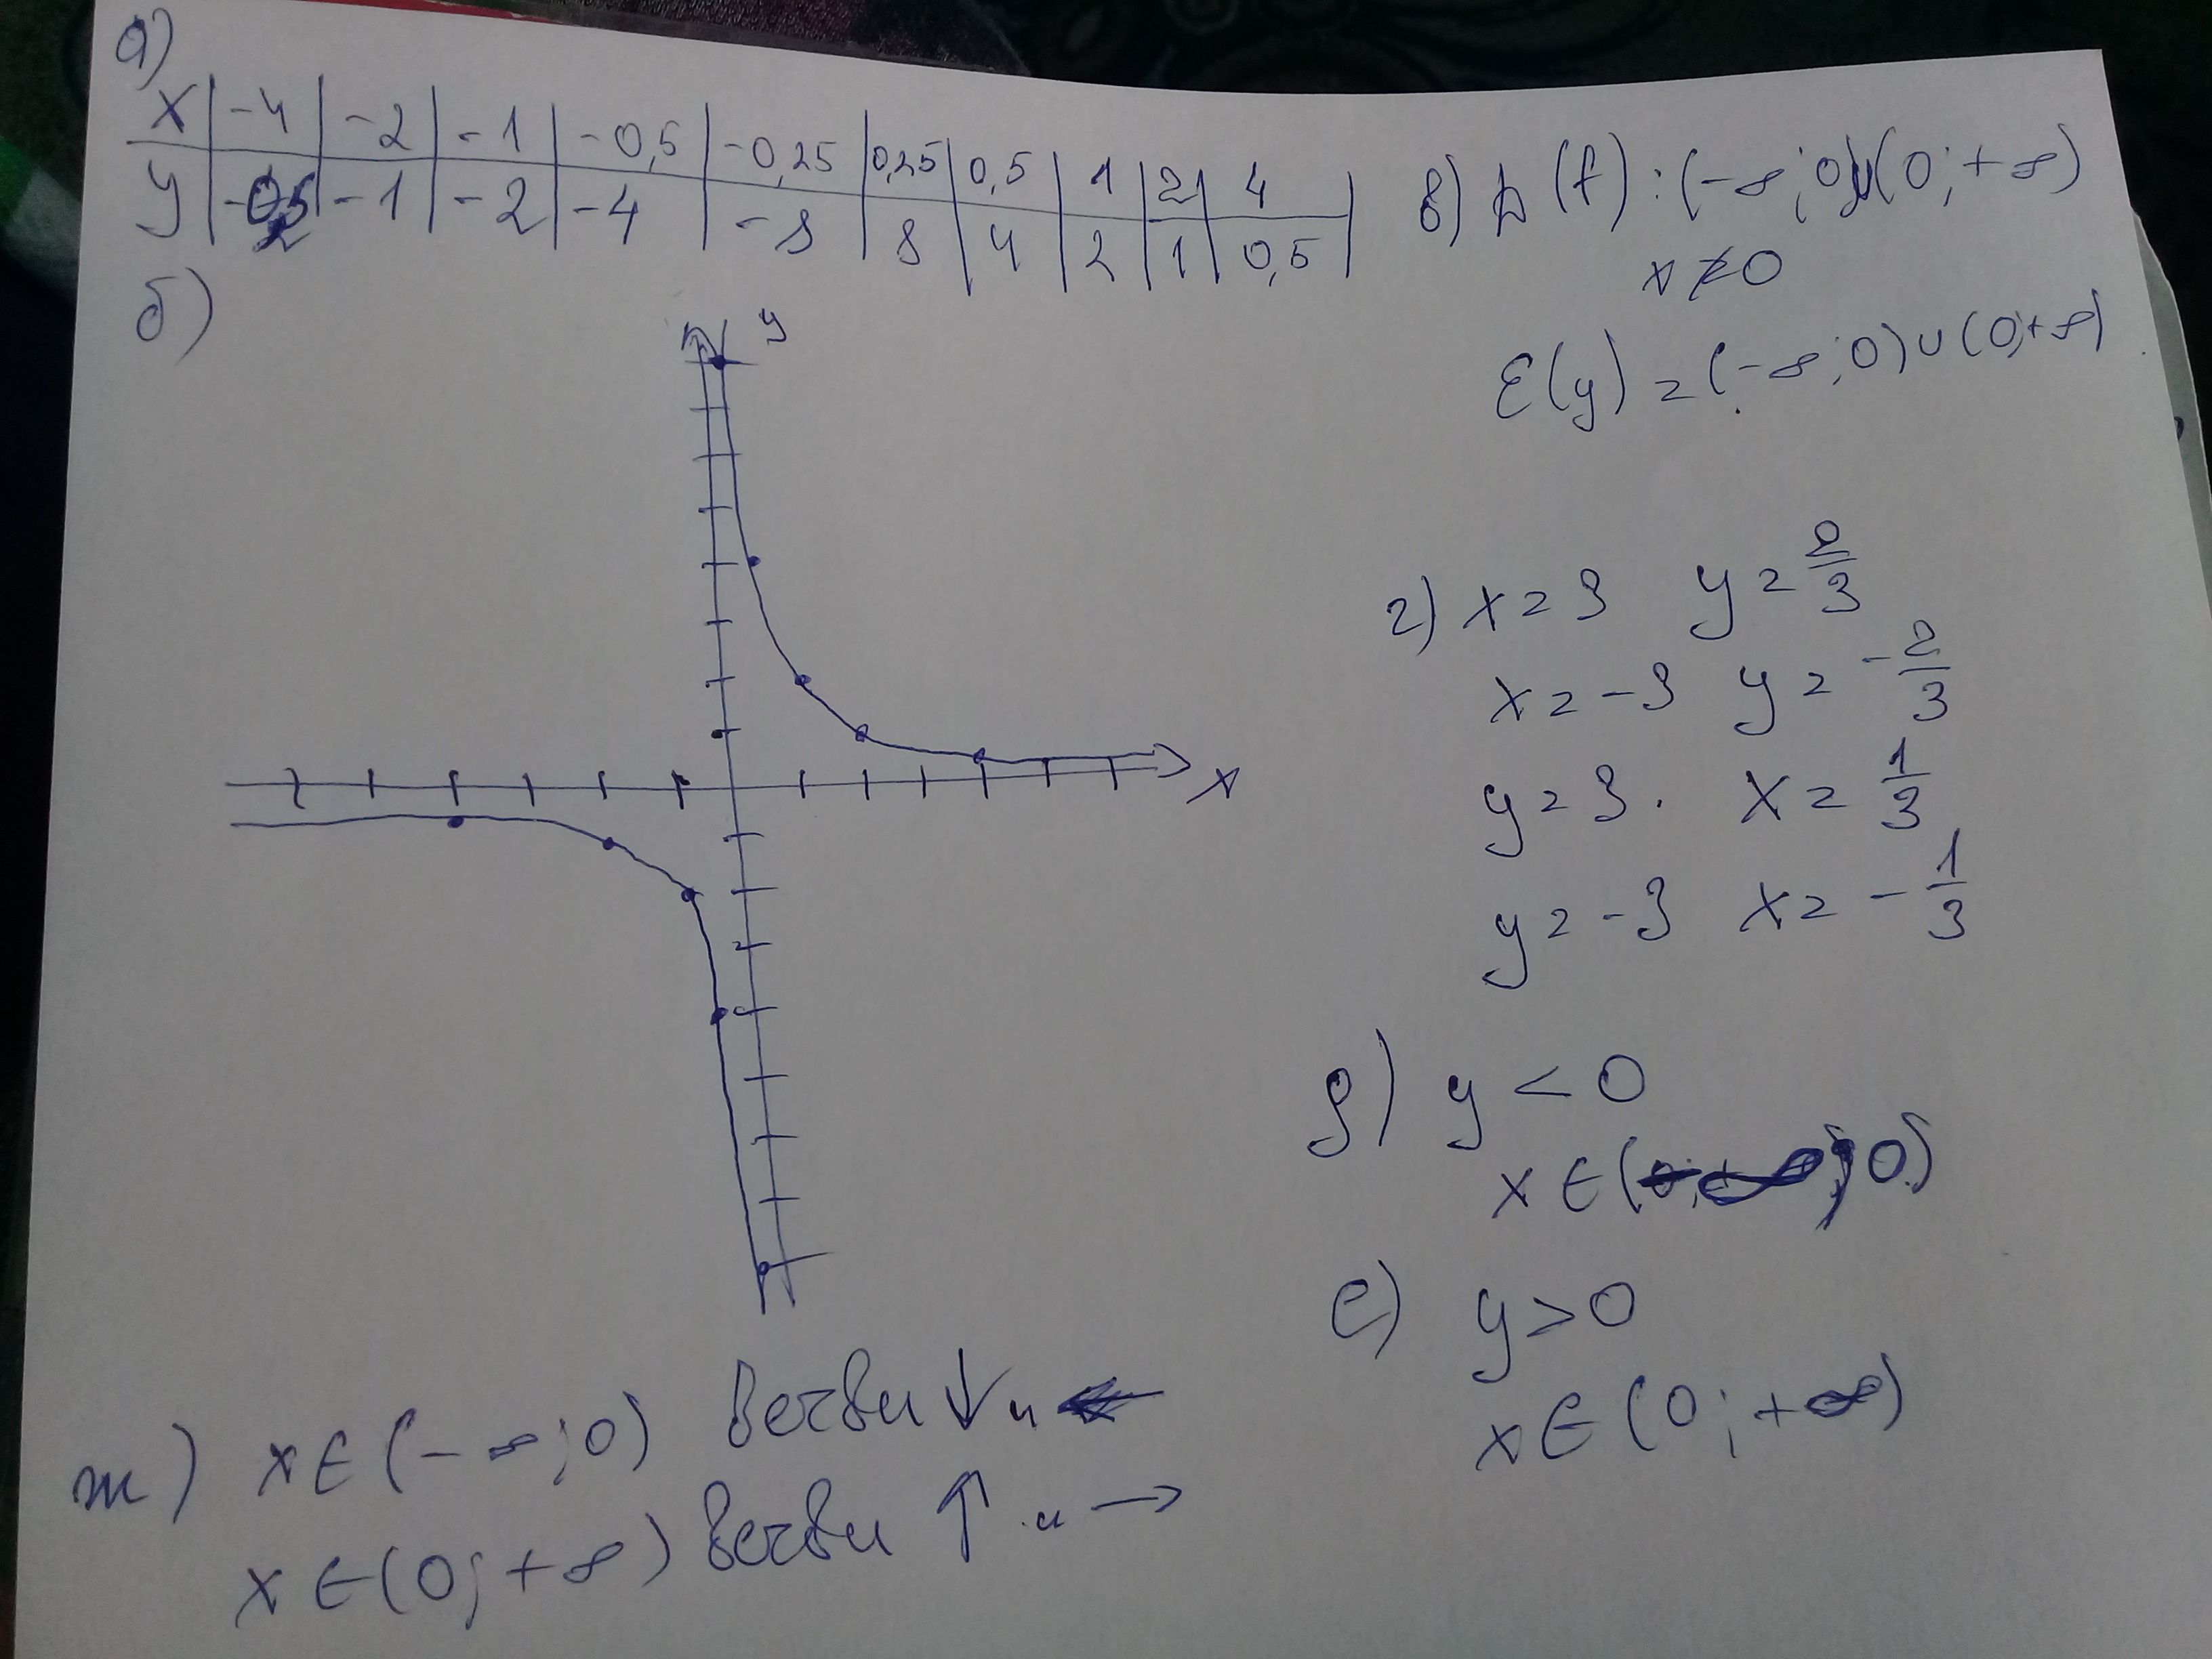 а)
x | -4 | -2 | -1 | -0,5 | -0,25 | 0,25 | 0,5 | 1 | 2 | 4
y | -0,5 | -1 | -2 | -4 | -8 | 8 | 4 | 2 | 1 | 0,5
б)
y
x
в) D(f): (-∞;0)∪(0;+∞)
x ≠ 0
E(y) = (-∞;0)∪(0;+∞)
г) x = 3 y = 2/3
x = -3 y = -2/3
y = 3. x = 1/3
y = -3 x = -1/3
д) y < 0
x ∈ (-∞;0)
е) y > 0
x ∈ (0;+∞)
ж) x ∈ (-∞;0) ветви ↓ и ←
x ∈ (0;+∞) ветви ↑ и →